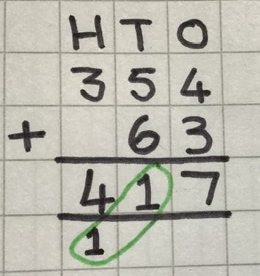 H T O
3 5 4
+ 6 3
4 1 7
1